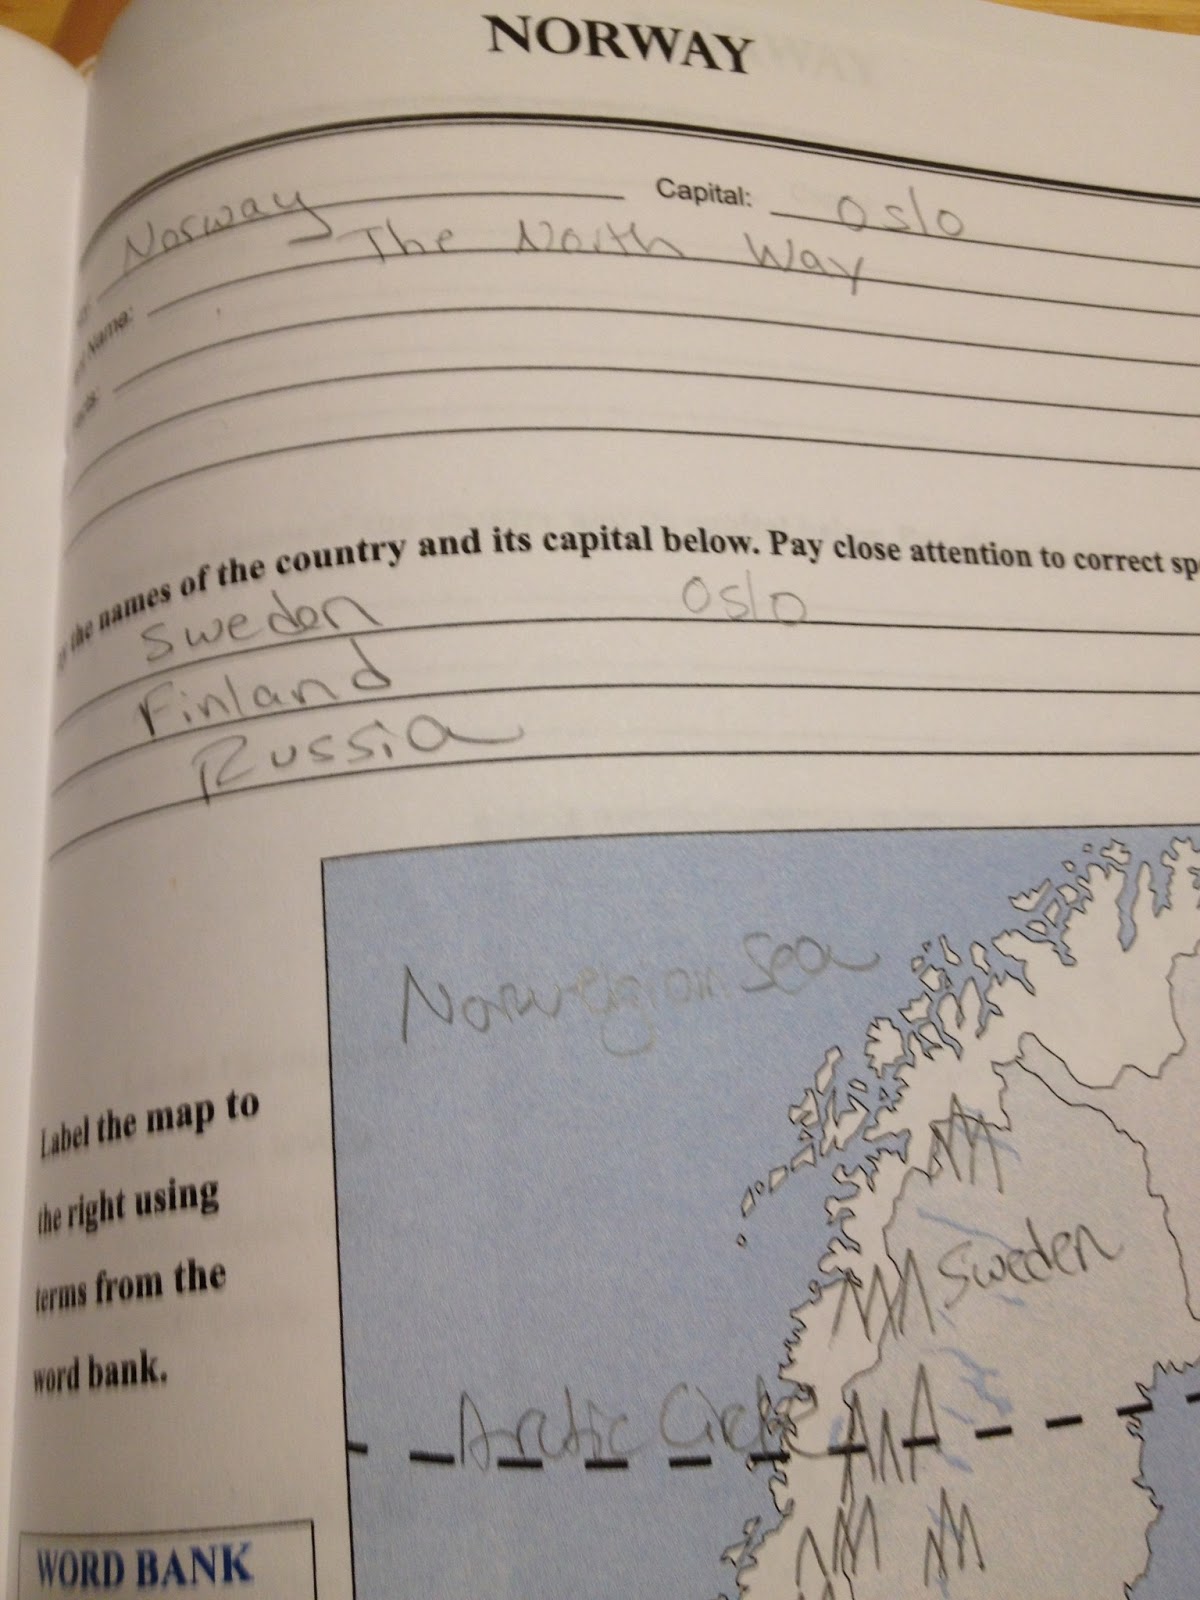 NORWAY
Norway Capital: Oslo
Name: The North Way
the names of the country and its capital below. Pay close attention to correct sp
Sweden Oslo
Finland
Russia
Norwegian Sea
Label the map to
the right using
terms from the
word bank.
Sweden
Arctic Circle
WORD BANK